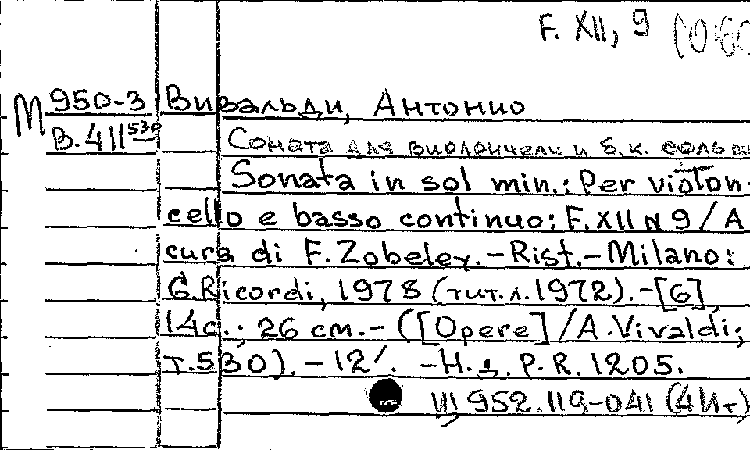 F. XII, 9
М 950-3 Вивальди, Антонио
В.411530 Соната для виолончели и б.к. соль
Sonata in sol min.: Per violon-
cello e basso continuo: F. XII N 9 / A
cura di F. Zobeley. - Rist. - Milano:
G. Ricordi, 1978 (тит. л. 1972). - [6],
14 с.; 26 см. - ([Opere] / A. Vivaldi;
т. 530). - 12/. - Н. д. P. R. 1205.
952.119-041 (4Ит)